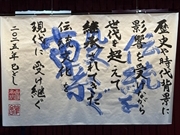 歴史や時代背景に
影響を受けながら
世代を超えて
継承されてきた
伝統文化を
現代に受け継ぐ
二〇二五年
伝統